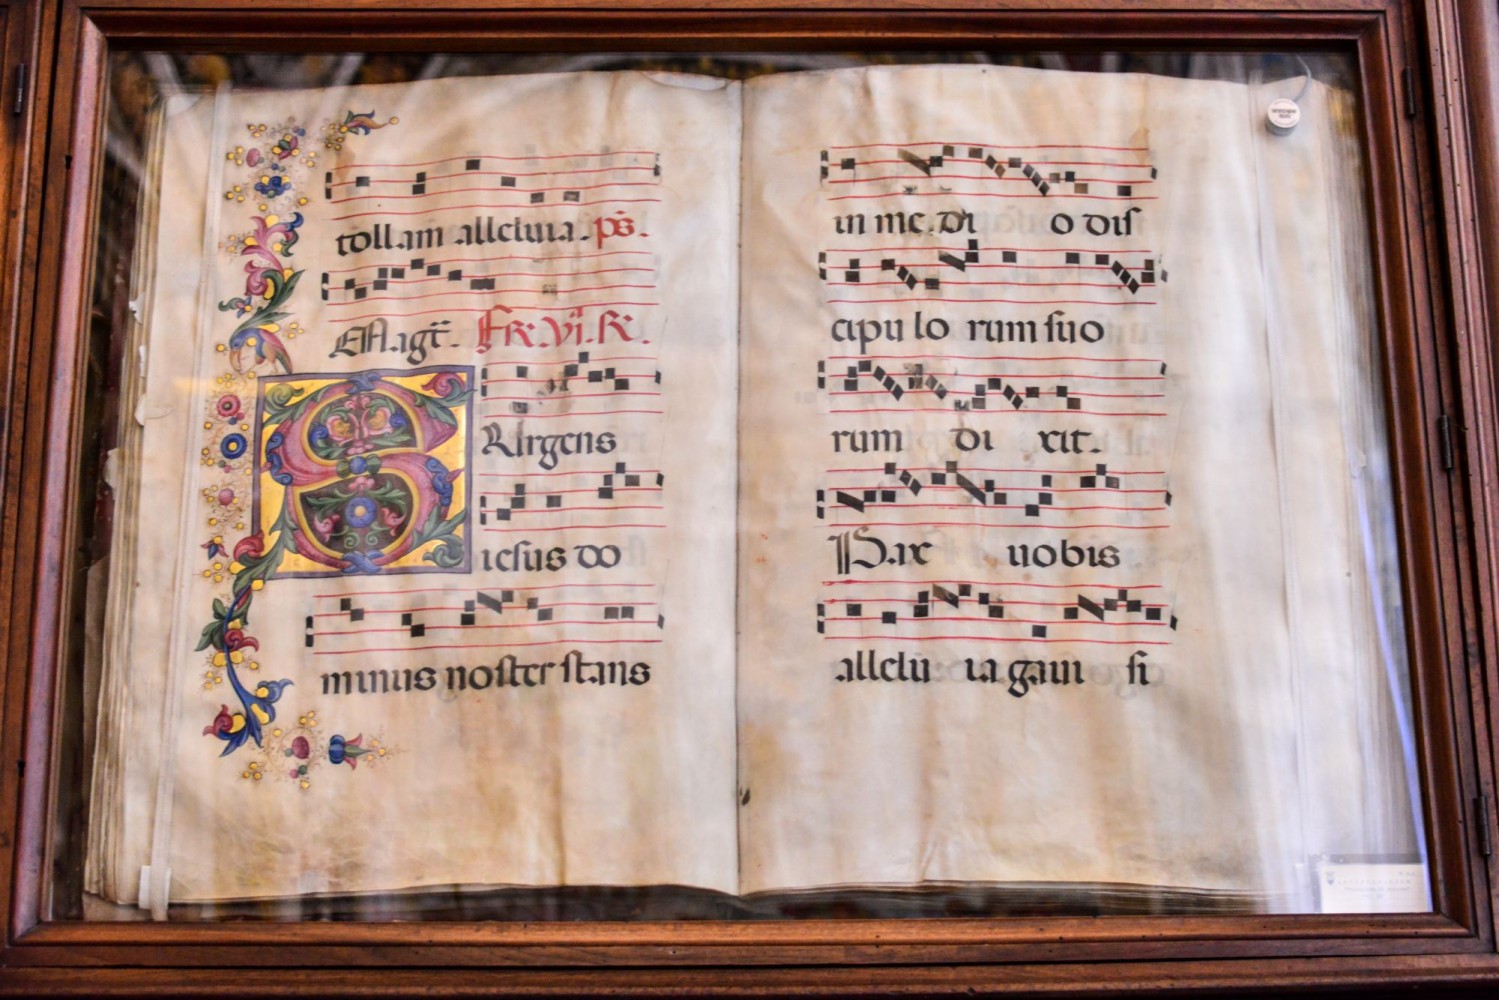 tollam alleluia. ps̄.
Magt̄. Fr̄. VI. R̄.
SUrgens
iesus do
minus noster stans
in me.di o dis
cipu lo rum suo
rum di xit.
Pax uobis
allelu ia gaui si